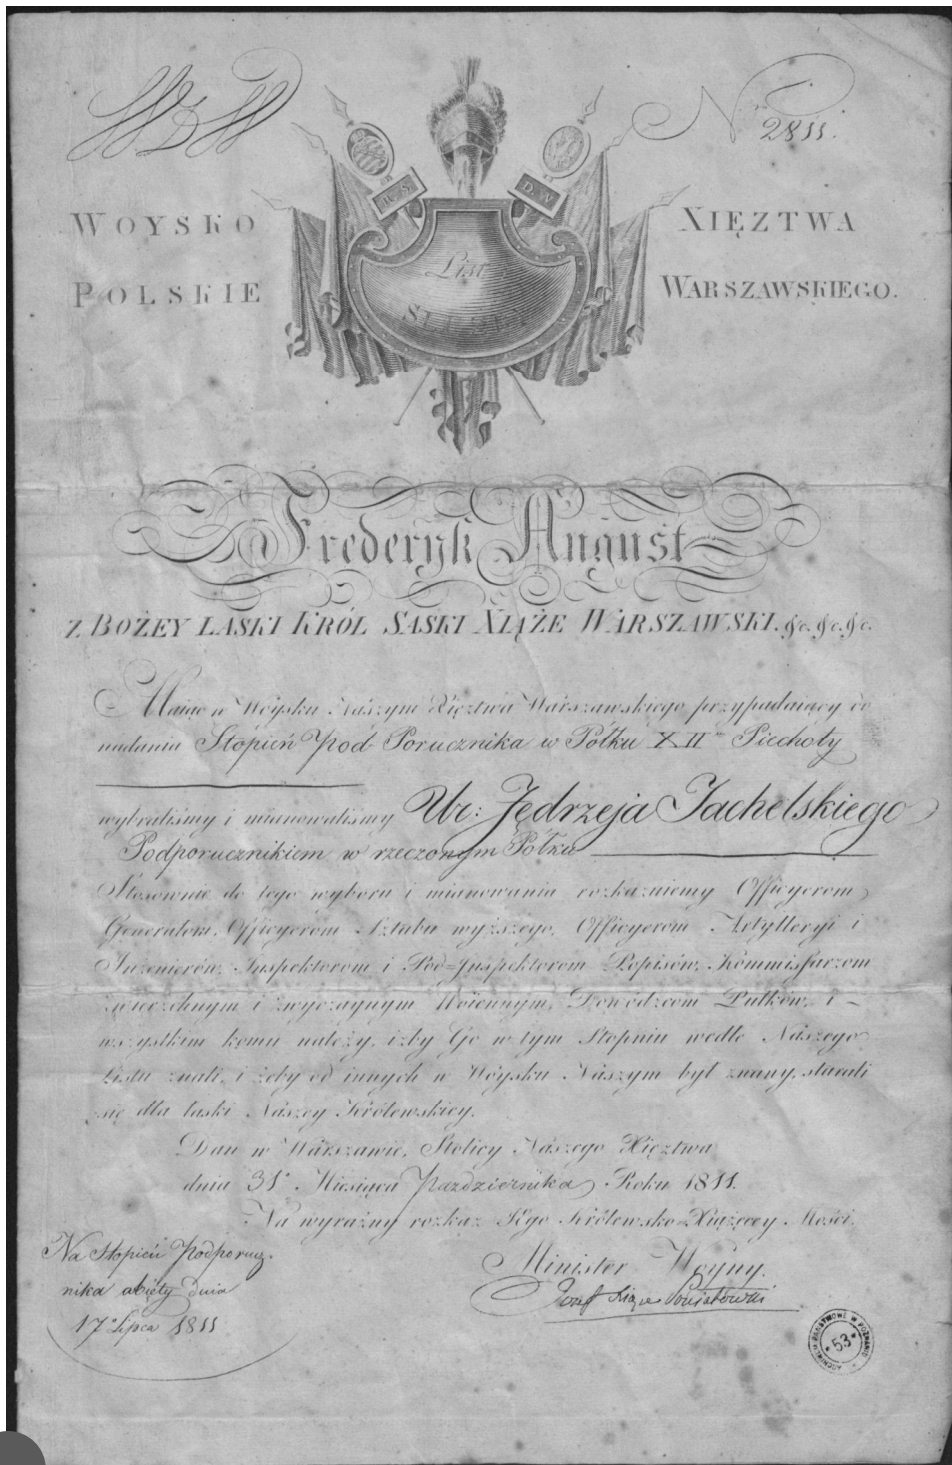 N 2811.
WOYSKO XIĘZTWA
POLSKIE WARSZAWSKIEGO.
List
SŁUŻBY
Frederyk August
Z BOŻEY ŁASKI KRÓL SASKI XIĄŻE WARSZAWSKI. &c. &c. &c.
Maiąc w Woysku Naszym Xięztwa Warszawskiego przypadaiący do
nadania Stopień Pod Porucznika w Półku XII Piechoty
wybraliśmy i mianowaliśmy Ur: Jędrzeja Jachelskiego
Podporucznikiem w rzeczonym Półku
Stosownie do tego wyboru i mianowania rozkazuiemy Officyerom
Generałom, Officyerom Sztabu wyższego, Officyerom Artylleryi i
Inżenierów, Inspektorom i Pod-Inspektorom Popisów, Kommissarzom
zwierzchnym i zwyczaynym Woiennym, Dowódzcom Pułków, i
wszystkim komu należy, iżby Go w tym Stopniu wedle Naszego
Listu znali, i żeby od innych w Woysku Naszym był znany, starali
się dla łaski Naszey Królewskiey.
Dan w Warszawie, Stolicy Naszego Xięztwa
dnia 31 Miesiąca Października Roku 1811.
Na wyraźny rozkaz Jego Królewsko-Xiążęcey Mości.
Minister Woyny.
Jozef Xiąże Poniatowski
Na Stopień Podporucz.
nika dnia
17 Lipca 1811
ARCHIWUM PAŃSTWOWE W POZNANIU
53